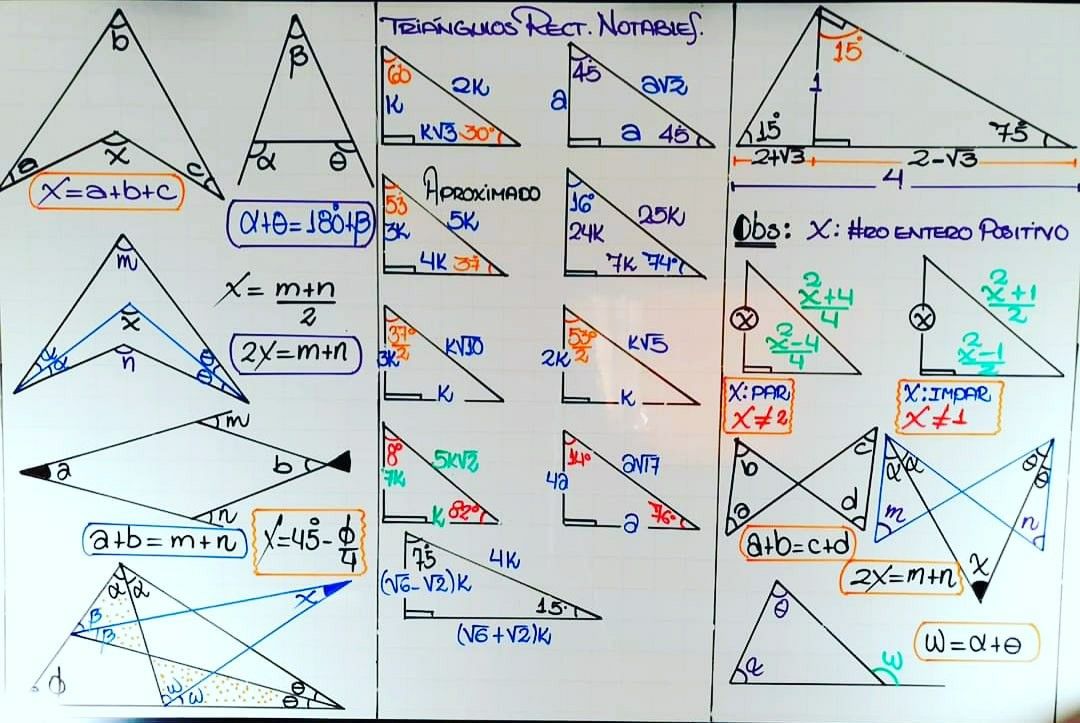 b
a
x
c
X=a+b+c
β
α
θ
α+θ=180°+β
m
x
α
α
n
θ
θ
x=\frac{m+n}{2}
2X=m+n
m
a
b
n
a+b=m+n
X=45°-\frac{ϕ}{4}
α
α
β
β
x
ϕ
ω
ω
θ
θ
TRIÁNGULOS RECT. NOTABLES.
60
K
2K
K√3
30°
45
a
a√2
a
45
APROXIMADO
53
3K
5K
4K
37
16°
24K
25K
7K
74°
\frac{37°}{2}
3K
K√10
K
\frac{53°}{2}
2K
K√5
K
8°
7K
5K√2
K
82°
14°
4a
a√17
a
76°
75
4K
(√6-√2)K
15°
(√6+√2)K
15°
1
15°
75
2+√3
2-√3
4
Obs: X: #RO ENTERO POSITIVO
x
\frac{x²+4}{4}
\frac{x²-4}{4}
X: PAR
X≠2
x
\frac{x²+1}{2}
\frac{x²-1}{2}
X: IMPAR
X≠1
b
a
c
d
a+b=c+d
α
α
m
θ
θ
n
x
2X=m+n
θ
α
ω
ω=α+θ